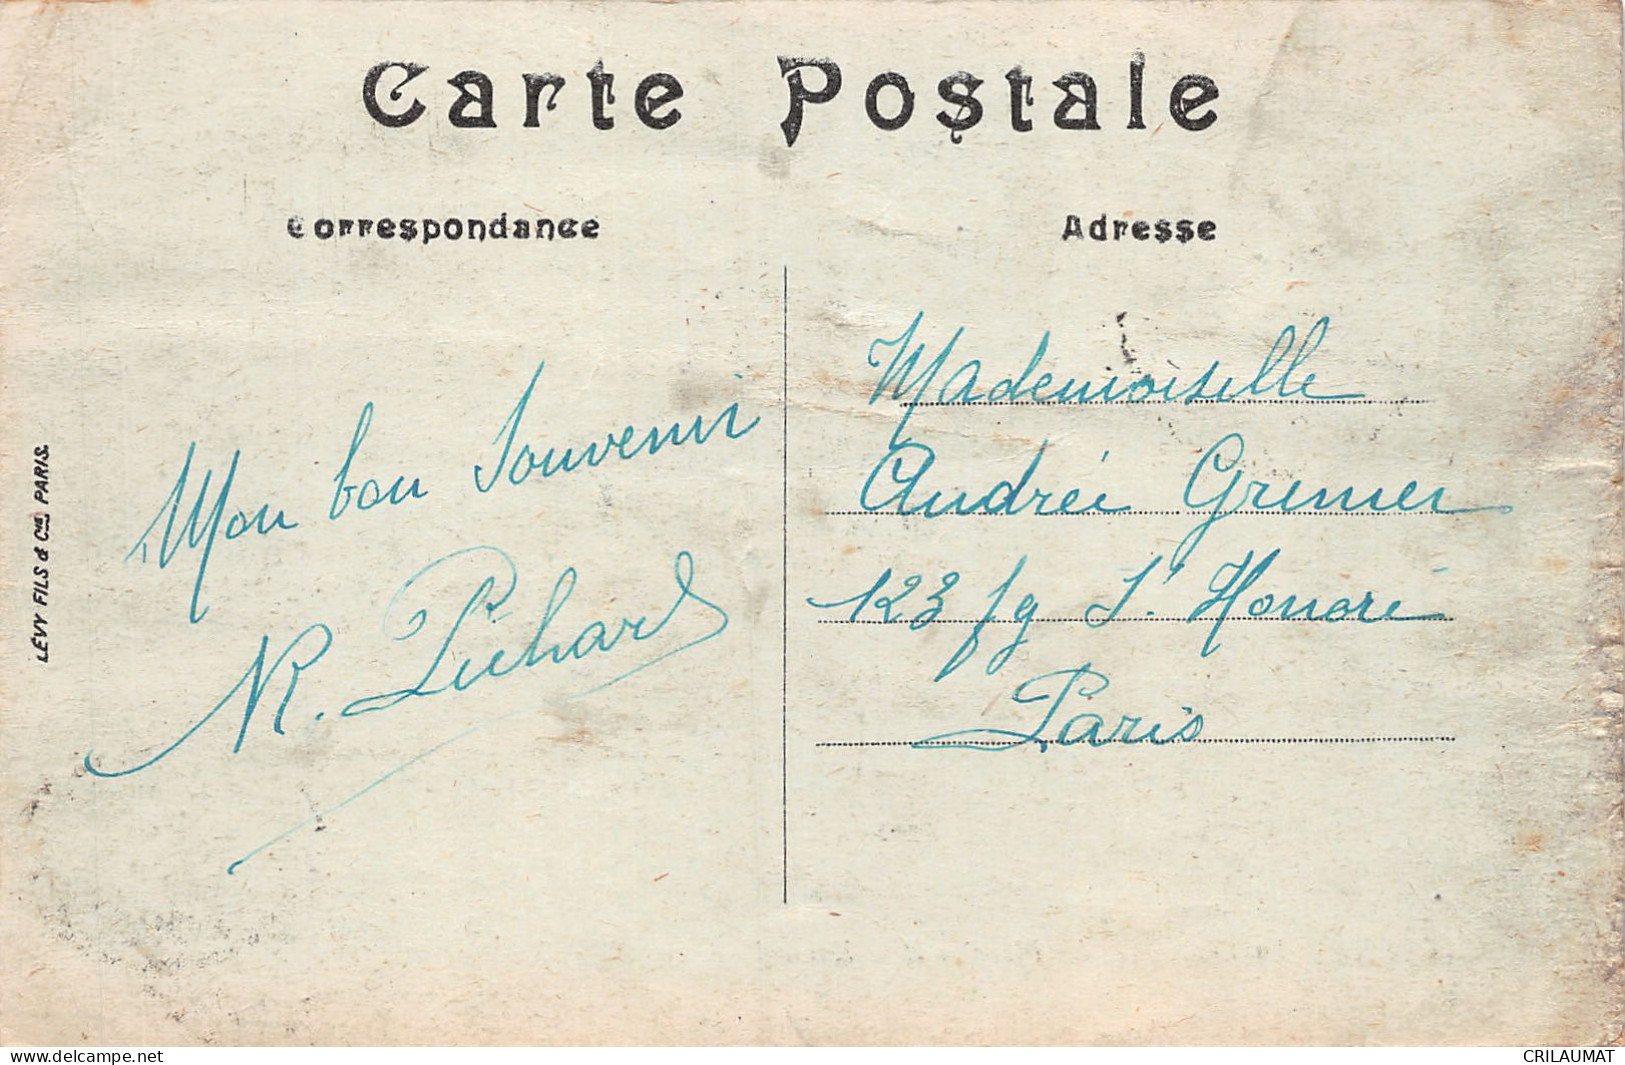 Carte Postale
Correspondance
Adresse
LEVY FILS & Cie, PARIS.
Mon bon Souvenir
Mademoiselle
Andréé
123 fg St Honoré
Paris
R.
https://www.delcampe.net
CRILAUMAT